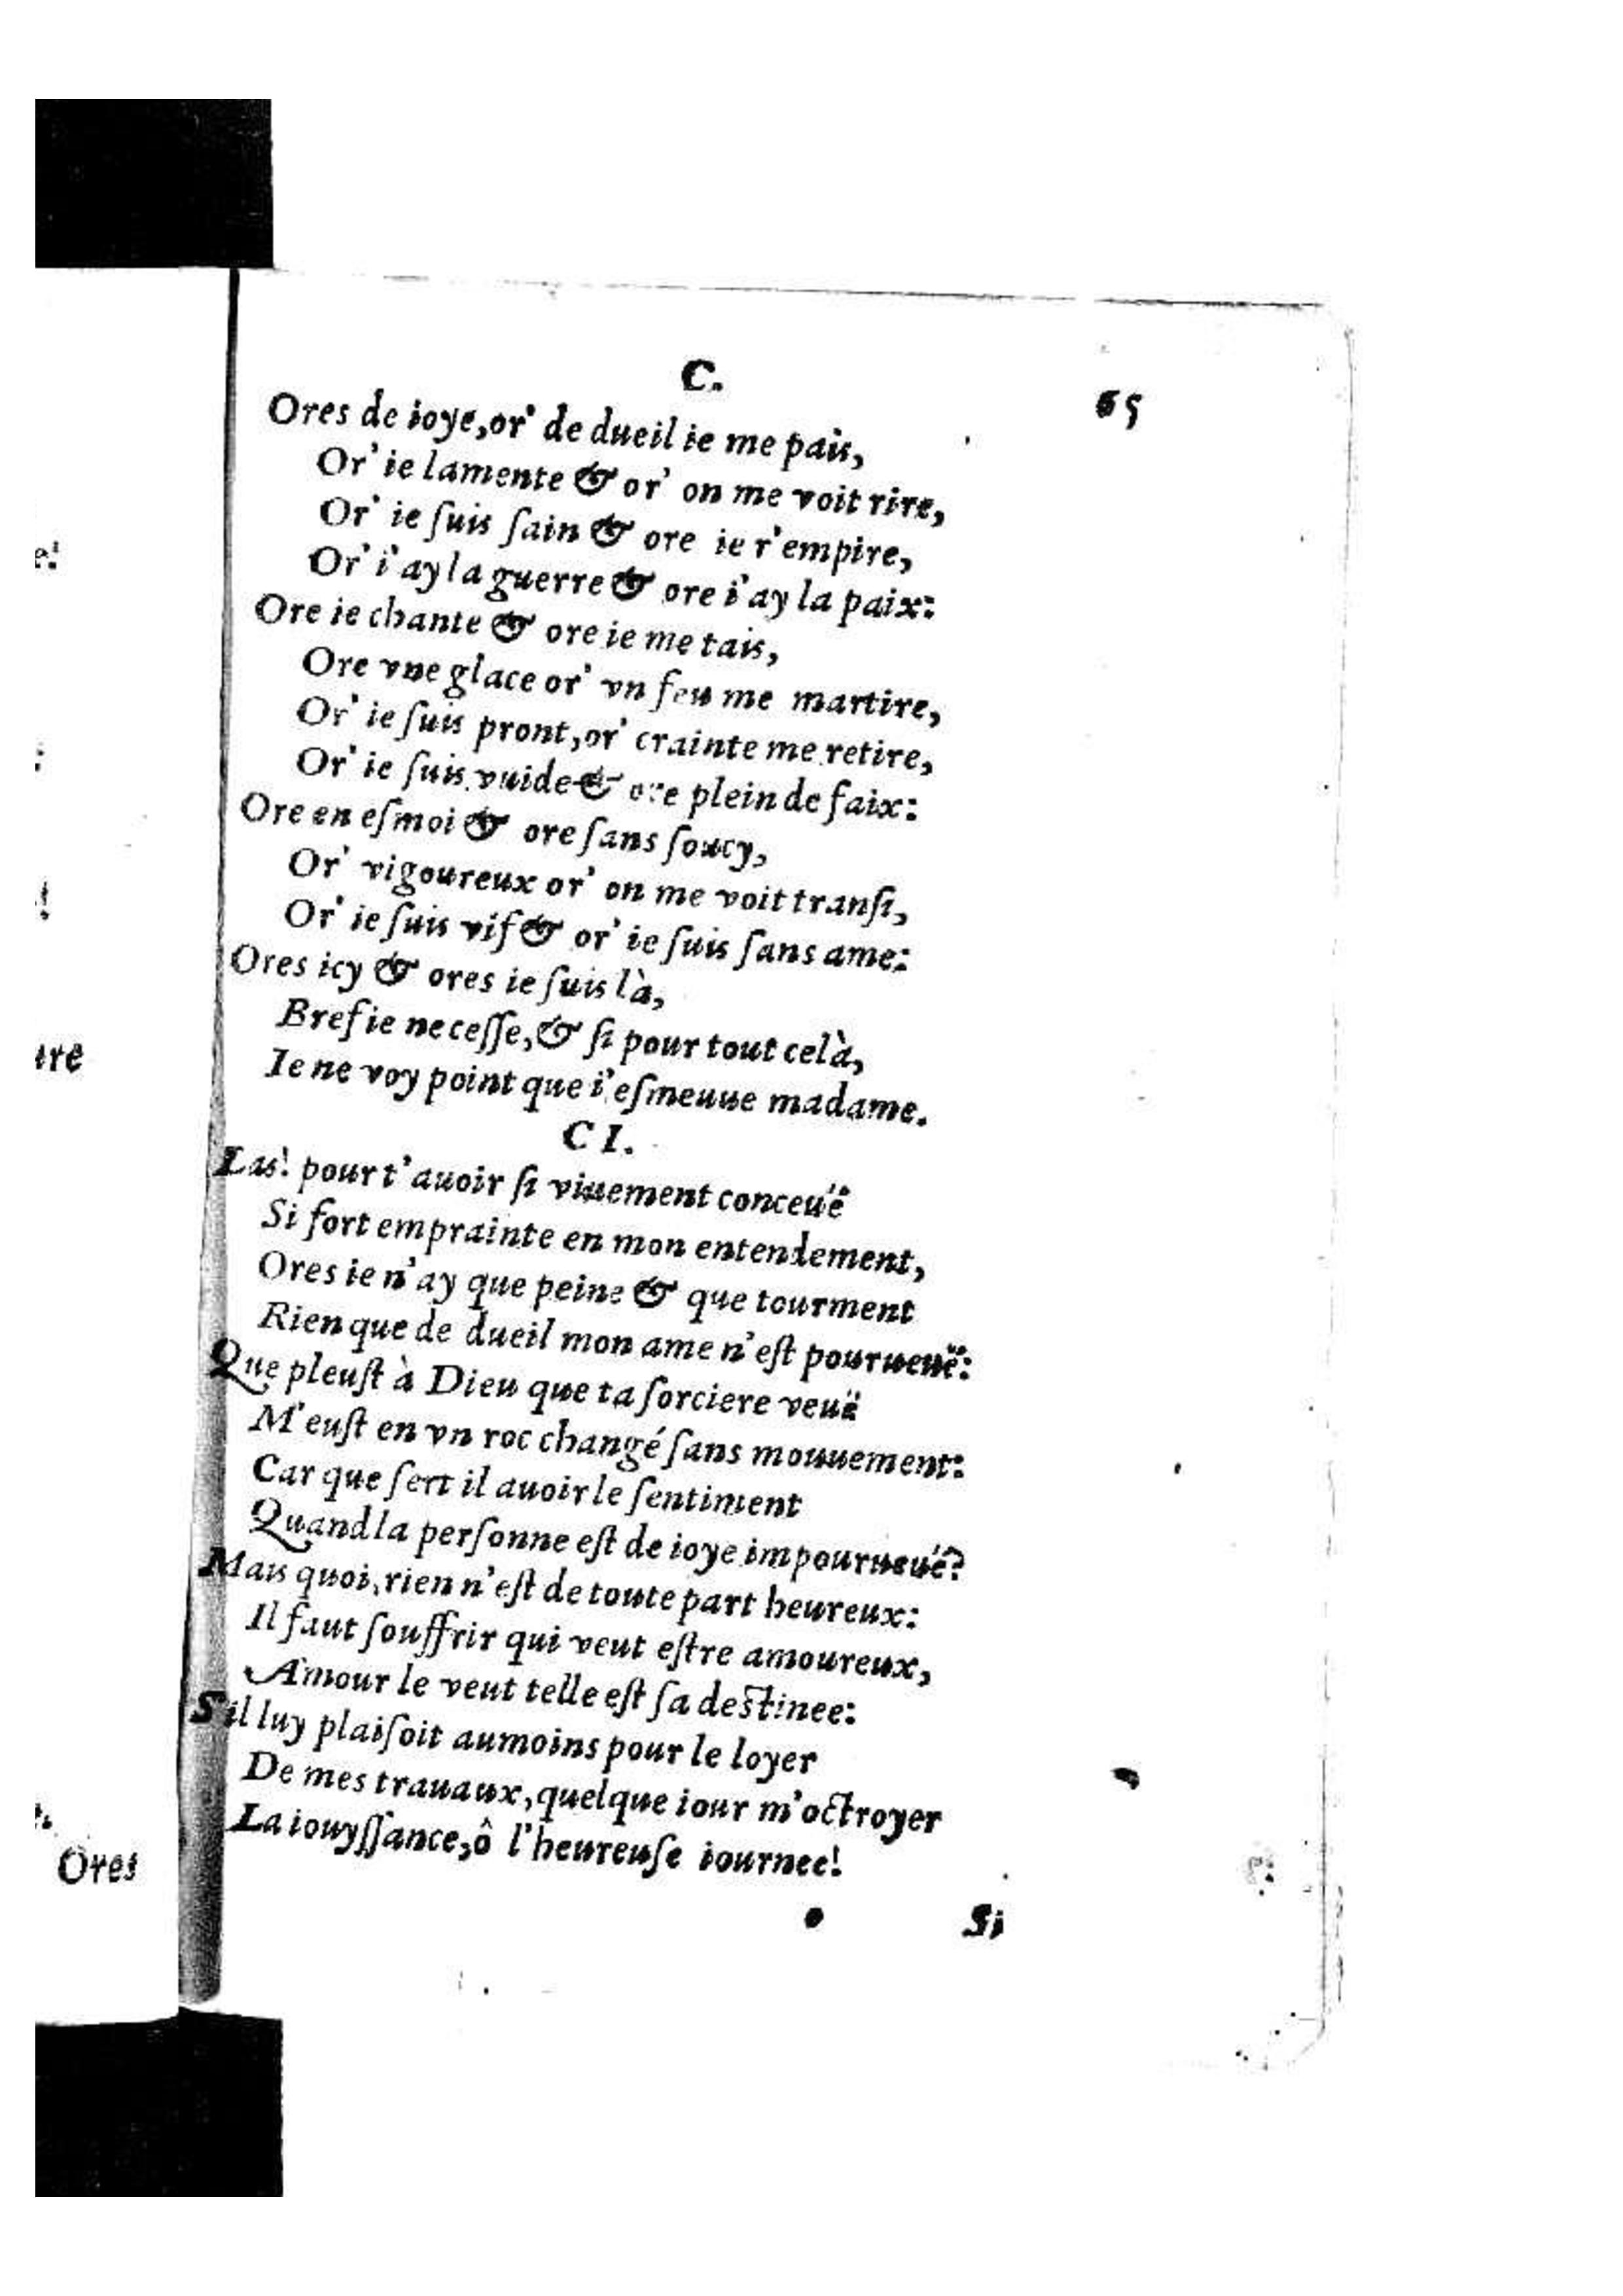 C.
65
Ores de ioye, or' de dueil ie me pais,
Or' ie lamente & or' on me voit rire,
Or' ie ſuis ſain & ore ie r'empire,
Or' i'ay la guerre & ore i'ay la paix:
Ore ie chante & ore ie me tais,
Ore vne glace or' vn feu me martire,
Or' ie ſuis pront, or' crainte me retire,
Or' ie ſuis vuide & ore plein de faix:
Ore en eſmoi & ore ſans ſoucy,
Or' vigoureux or' on me voit tranſi,
Or' ie ſuis vif & or' ie ſuis ſans ame:
Ores icy & ores ie ſuis là,
Bref ie ne ceſſe, & ſi pour tout celà,
Ie ne voy point que i'eſmeuue madame.
CI.
Las! pour t'auoir ſi viuement conceuë
Si fort emprainte en mon entendement,
Ores ie n'ay que peine & que tourment
Rien que de dueil mon ame n'eſt pourueuë:
Que pleuſt à Dieu que ta ſorciere veuë
M'euſt en vn roc changé ſans mouuement:
Car que ſert il auoir le ſentiment
Quand la perſonne eſt de ioye impourueuë?
Mais quoi, rien n'eſt de toute part heureux:
Il faut ſouffrir qui veut eſtre amoureux,
Amour le veut telle eſt ſa destinee:
S'il luy plaiſoit aumoins pour le loyer
De mes trauaux, quelque iour m'octroyer
La iouyſſance, ô l'heureuſe iournee!
Si
Ores